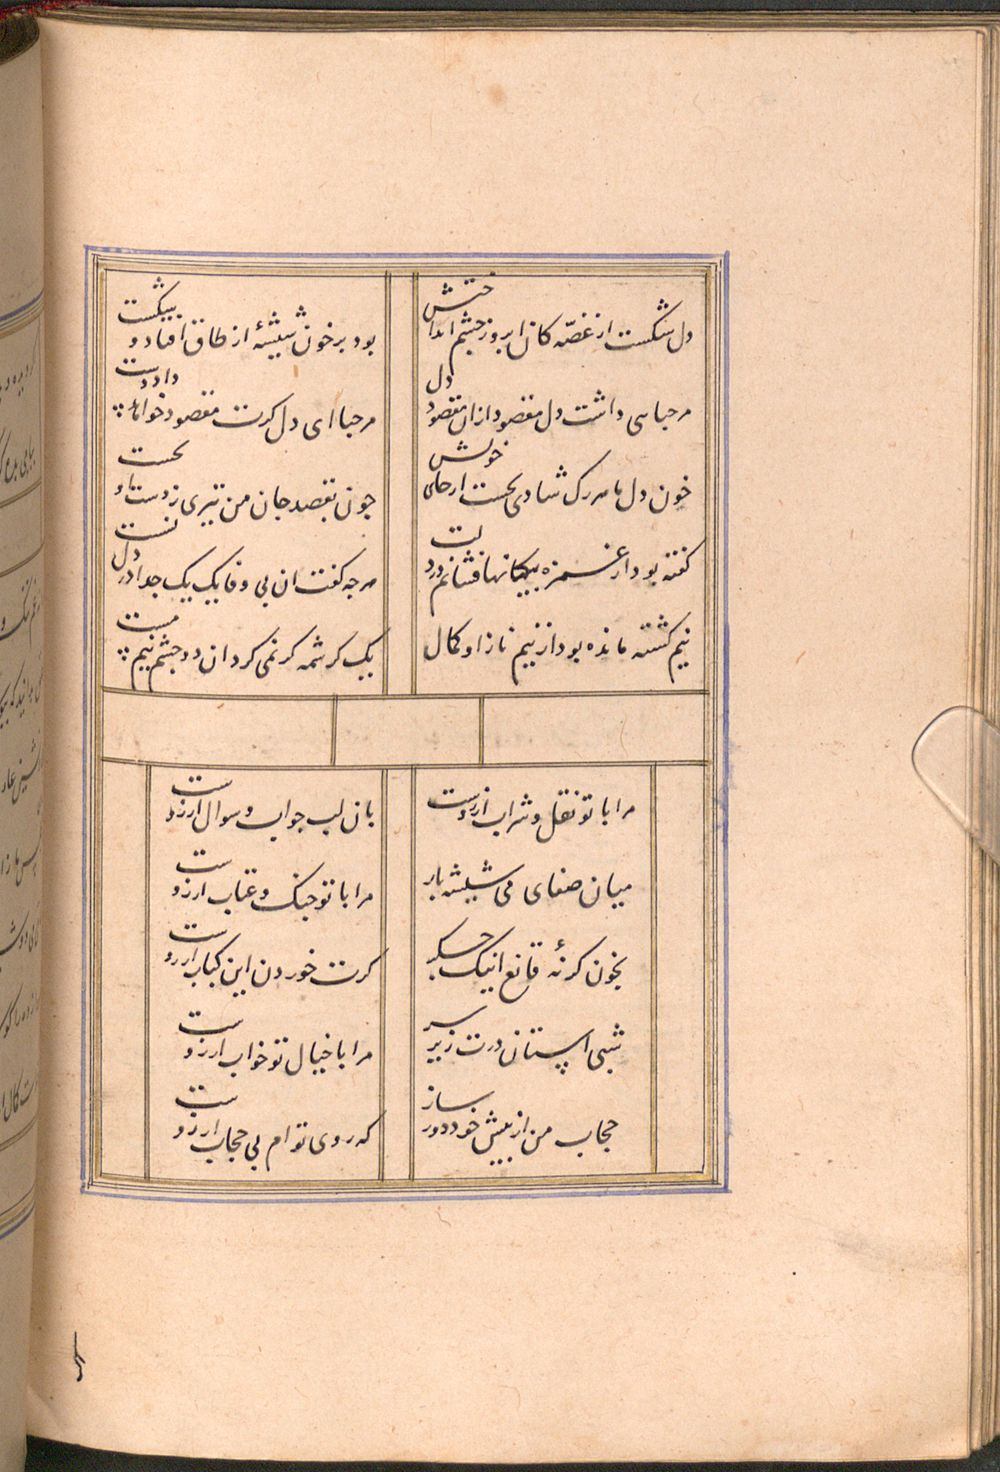 دل شکست از غصه کان ابرو ز چشم انداختش
بود پر خون شیشهٔ از طاق افتاد و بشکست
مرحبا می داشت دل مقصود ازان مقصود دل
مرحبا ای دل کرت مقصود خواهد داد دست
خون دل با هر رک شادی بجست از جای خویش
چون بقصد جان من تیری ز دست او بجست
کفته بود از غمزه پیکانها فشانم در دلت
هرچه کفت ان بی وفا یک یک جدا در دل نشست
نیم کشته مانده بود از نیم ناز او کمال
یک کرشمه کر نمی کرد ان دو چشم نیم مست
مرا با تو نقل و شراب ارزوست
بان لب جواب و سوال ارزوست
میان صفای می شیشه بار
مرا با تو جنک و عتاب ارزوست
بخون کرنهٔ قانع اینک جکر
کرت خوردن این کباب ارزوست
شبی استان درت زیر سر
مرا با خیال تو خواب ارزوست
حجاب من از پیش خود دور ساز
که روی توام بی حجاب ارزوست